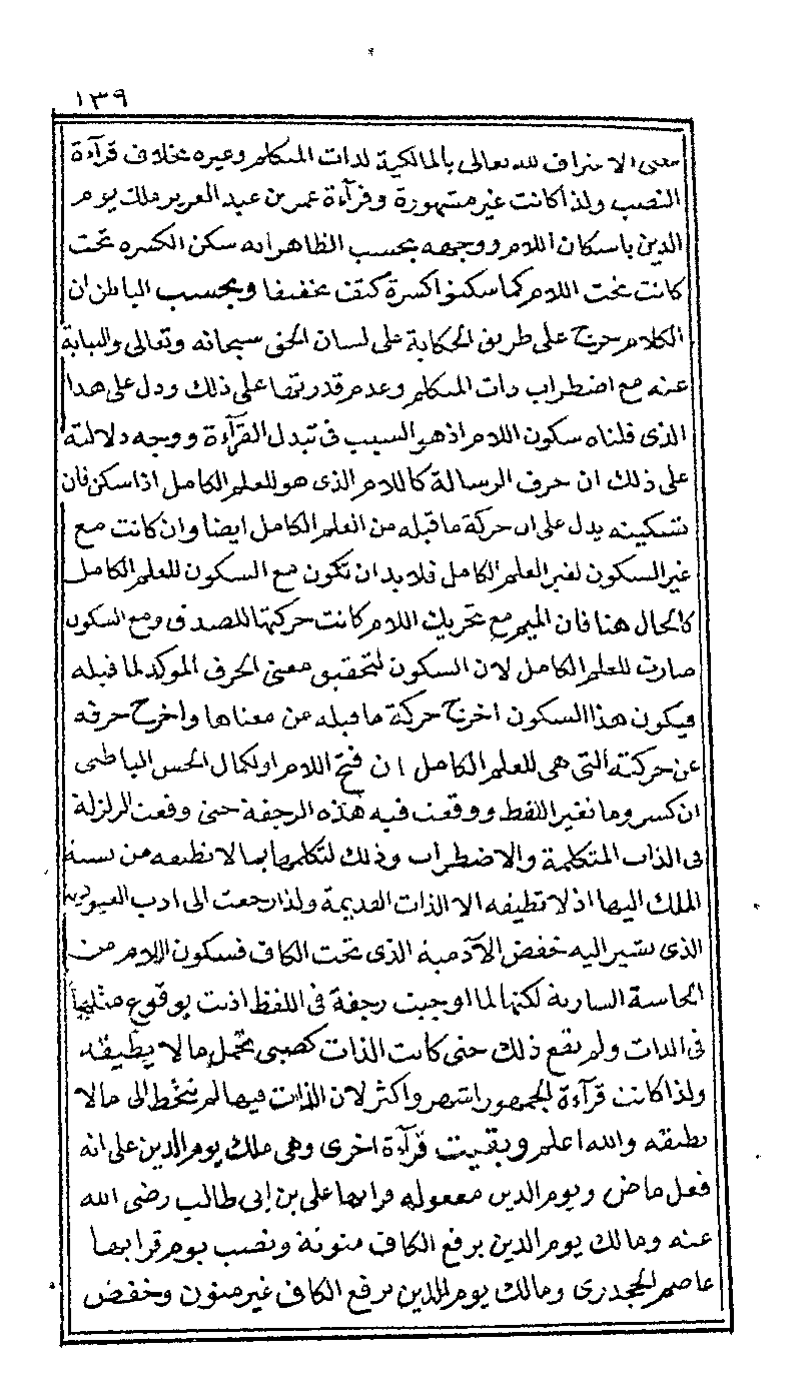 ١٣٩
معنى الاعتراف لله تعالى بالمالكية لذات المتكلم وغيره بخلاف قراءة
النصب ولذا كانت غير مشهورة وقرآءة عمر بن عبد العزيز ملك يوم
الدين باسكان اللام ووجهه بحسب الظاهر انه سكن الكسرة تحت
كانت تحت اللام كما سكنوا كسرة كتف تخفيفا وبحسب الباطن ان
الكلام خرج على طريق الحكاية على لسان الحق سبحانه وتعالى والنيابة
عنه مع اضطراب ذات المتكلم وعدم قدرتها على ذلك ودل على هذا
الذى قلناه سكون اللام اذ هو السبب فى تبدل القرآءة ووجه دلالته
على ذلك ان حرف الرسالة كاللام الذى هو للعلم الكامل اذا سكن فان
تسكينه يدل على ان حركة ما قبله من العلم الكامل ايضا وان كانت مع
غير السكون لغير العلم الكامل فلا بد ان تكون مع السكون للعلم الكامل
كالحال هنا فان الميم مع تحريك اللام كانت حركتها للصدق ومع السكون
صارت للعلم الكامل لان السكون لتحقيق معنى الحرف الموكد لما قبله
فيكون هذا السكون اخرج حركة ما قبله عن معناها واخرج حرفه
عن حركته التى هى للعلم الكامل ان فتح اللام او لكمال الحس الباطنى
ان كسر وما تغير اللفظ ووقعت فيه هذه الرجفة حتى وقعت الزلزلة
فى الذات المتكلمة والاضطراب وذلك لتكلمها بما لا تطيقه من نسبة
الملك اليها اذ لا تطيقه الا الذات القديمة ولذا رجعت الى ادب العبودية
الذى يشير اليه خفض الآدمية الذى تحت الكاف فسكون اللام من
الحاسة السارية لكنها لما اوجبت رجفة فى اللفظ اذنت بوقوع مثلها
فى الذات ولم يقع ذلك حتى كانت الذات كصبى يحمل ما لا يطيقه
ولذا كانت قرآءة الجمهور اشهر واكثر لان الذات فيها لم تتخط الى ما لا
تطيقه والله اعلم وبقيت قرآءة اخرى وهى ملك يوم الدين على انه
فعل ماض ويوم الدين مفعوله قرا بها على بن ابى طالب رضى الله
عنه ومالك يوم الدين برفع الكاف منونة ونصب يوم قرا بها
عاصم الجحدرى ومالك يوم الدين برفع الكاف غير منون وخفض